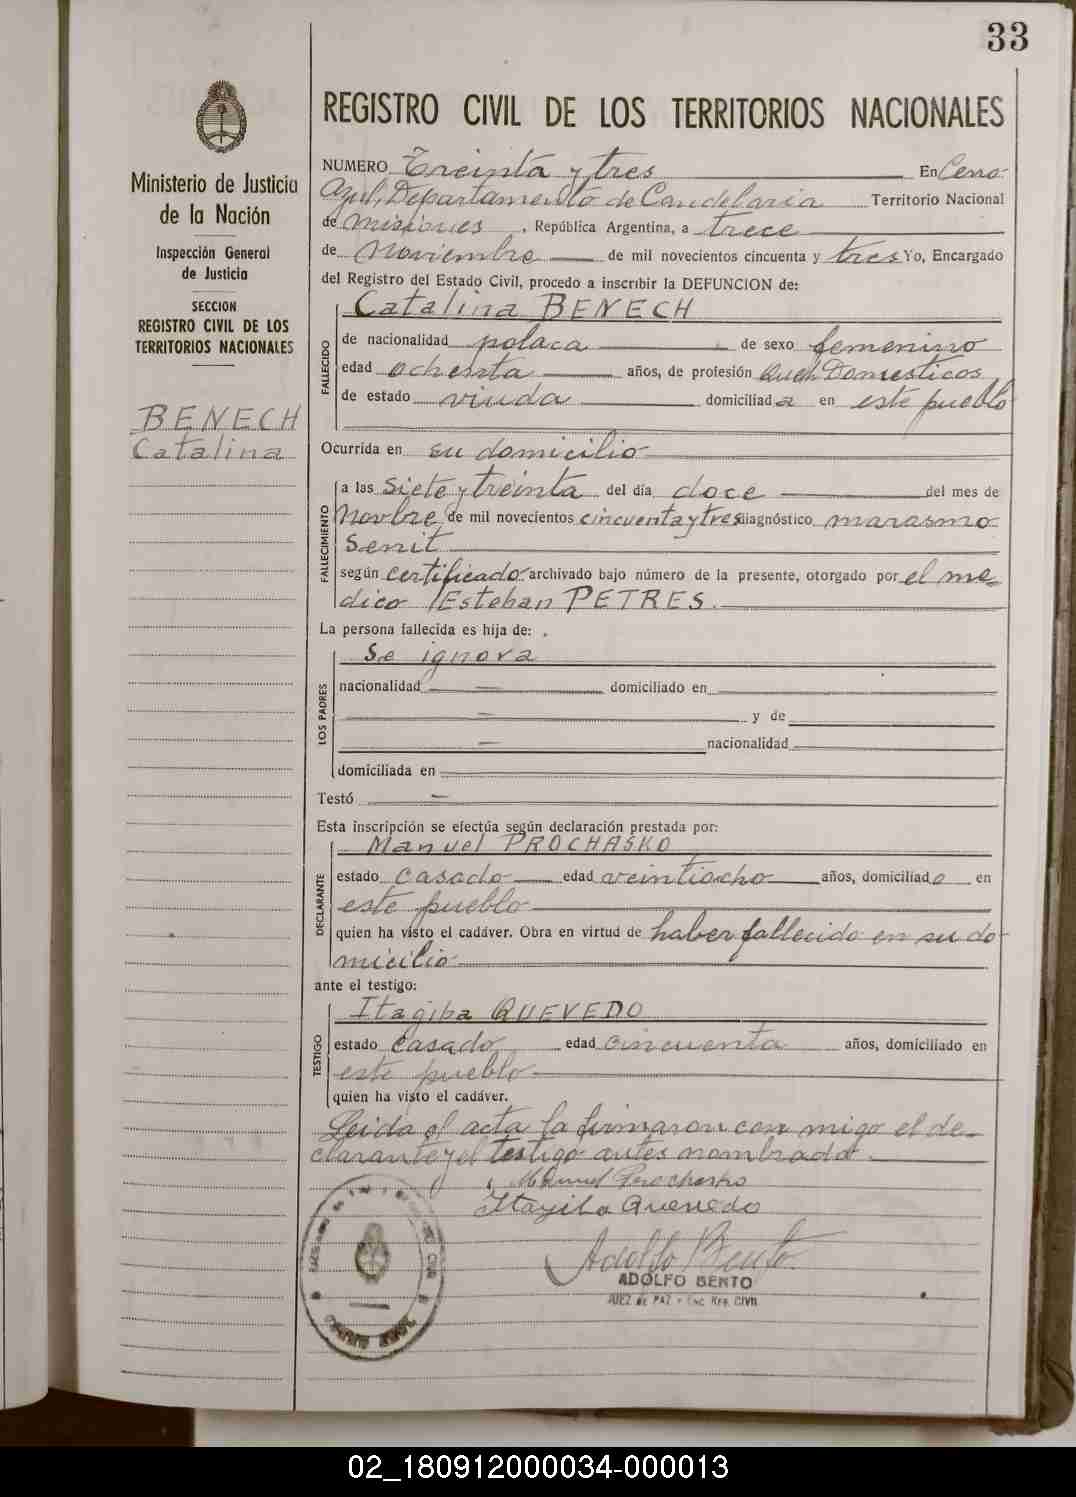 33
Ministerio de Justicia
de la Nación
Inspección General
de Justicia
SECCION
REGISTRO CIVIL DE LOS
TERRITORIOS NACIONALES
BENECH
Catalina
REGISTRO CIVIL DE LOS TERRITORIOS NACIONALES
NUMERO Treinta y tres En Cerro
Azul, Departamento de Candelaria Territorio Nacional
de Misiones, República Argentina, a trece
de Noviembre de mil novecientos cincuenta y tres Yo, Encargado
del Registro del Estado Civil, procedo a inscribir la DEFUNCION de:
Catalina BENECH
FALLECIDO
de nacionalidad polaca de sexo femenino
edad ochenta años, de profesión Queh Domesticos
de estado viuda domiciliada en este pueblo
Ocurrida en su domicilio
FALLECIMIENTO
a las Siete y treinta del día doce del mes de
Novbre de mil novecientos cincuenta y tres diagnóstico marasmo
senit
según certificado archivado bajo número de la presente, otorgado por el me-
dico Esteban PETRES.
La persona fallecida es hija de:
LOS PADRES
Se ignora
nacionalidad — domiciliado en
— y de
— nacionalidad
domiciliada en
Testó —
Esta inscripción se efectúa según declaración prestada por:
DECLARANTE
Manuel PROCHASKO
estado casado edad veintiocho años, domiciliado en
este pueblo
quien ha visto el cadáver. Obra en virtud de haber fallecido en su do-
micilio
ante el testigo:
TESTIGO
Itagiba QUEVEDO
estado casado edad cincuenta años, domiciliado en
este pueblo
quien ha visto el cadáver.
Leida el acta la firmaron con migo el de-
clarante y el testigo antes nombrado.
Manuel Prochasko
Itagiba Quevedo
Adolfo Bento
ADOLFO BENTO
JUEZ DE PAZ - ENC. REG. CIVIL
02_180912000034-000013